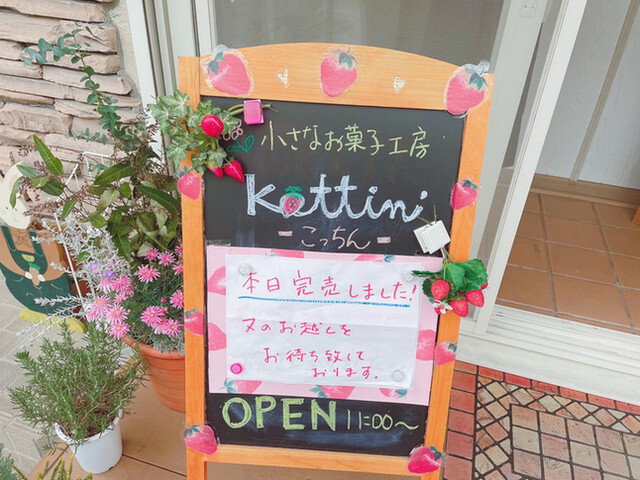 小さなお菓子工房
Kottin
-こっちん-
本日完売しました!
又のお越しを
お待ち致して
おります。
OPEN 11:00~